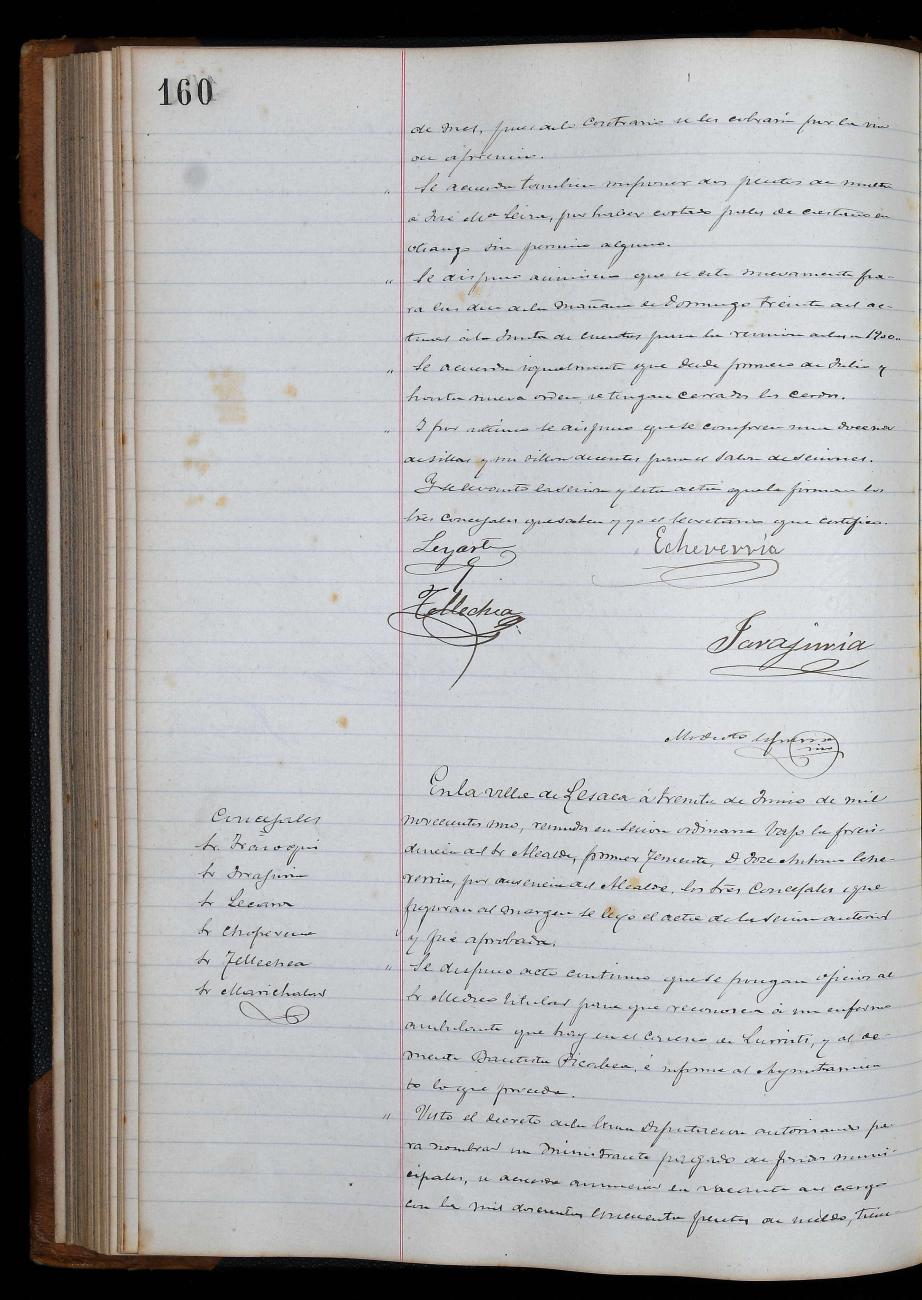 160
de mes, pues de lo contrario se les cobrarán por la via
de apremio.
" Se acuerda tambien imponer dos pesetas de multa
á José Mª Leiza, por haber cortado palos de castaño en
sin permiso alguno.
" Se dispuso asimismo que se cite nuevamente pa-
ra las diez de la mañana de Domingo treinta del ac-
tual á la Junta de cuentas para la revision de las de 1900.
" Se acuerda igualmente que desde primero de Julio y
hasta nueva orden, se tengan cerrados los cerdos.
" I por ultimo se dispuso que se compren una docena
de sillas y un sillon decentes para el salon de sesiones.
Y se levantó la sesion y esta acta que la firman los
tres concejales que saben y yo el Secretario que certifico.
Echeverria
Tellechea
Modesto
En la villa de Lesaca á treinta de Junio de mil
novecientos uno, reunidos en sesion ordinaria bajo la presi-
dencia del Sr Alcalde, primer Teniente, D. Jose Antonio Eche-
verria, por ausencia del Alcalde, los tres concejales que
figuran al margen se leyó el acta de la sesion anterior
y fué aprobada.
Concejales
Sr
Sr
Sr
Sr Choperena
Sr Tellechea
Sr Marichalar
" Se dispuso acto continuo que se pongan oficios al
Sr Medico titular para que reconozca á un enfermo
ambulante que hay en el caserio de y al de-
mente Bautista Picabea, é informe al Ayuntamien-
to lo que proceda.
" Visto el decreto de la Excma Diputacion autorizando pa-
ra nombrar un Ministrante pagado de fondos muni-
cipales, se acuerda anunciar la vacante del cargo
con la mil doscientas cincuenta pesetas de sueldo,